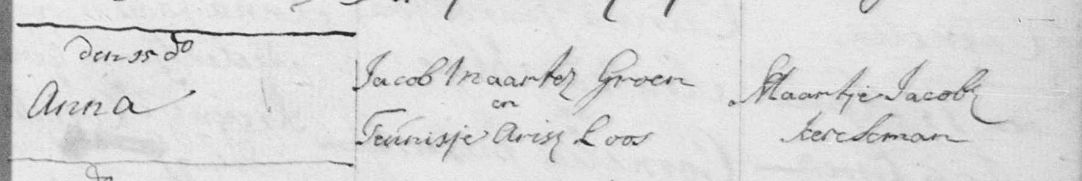 den 15 do
Anna
Jacob Maartez Groen
en
Teunisje Arisz Loos
Maartje Jacobz
Kereseman